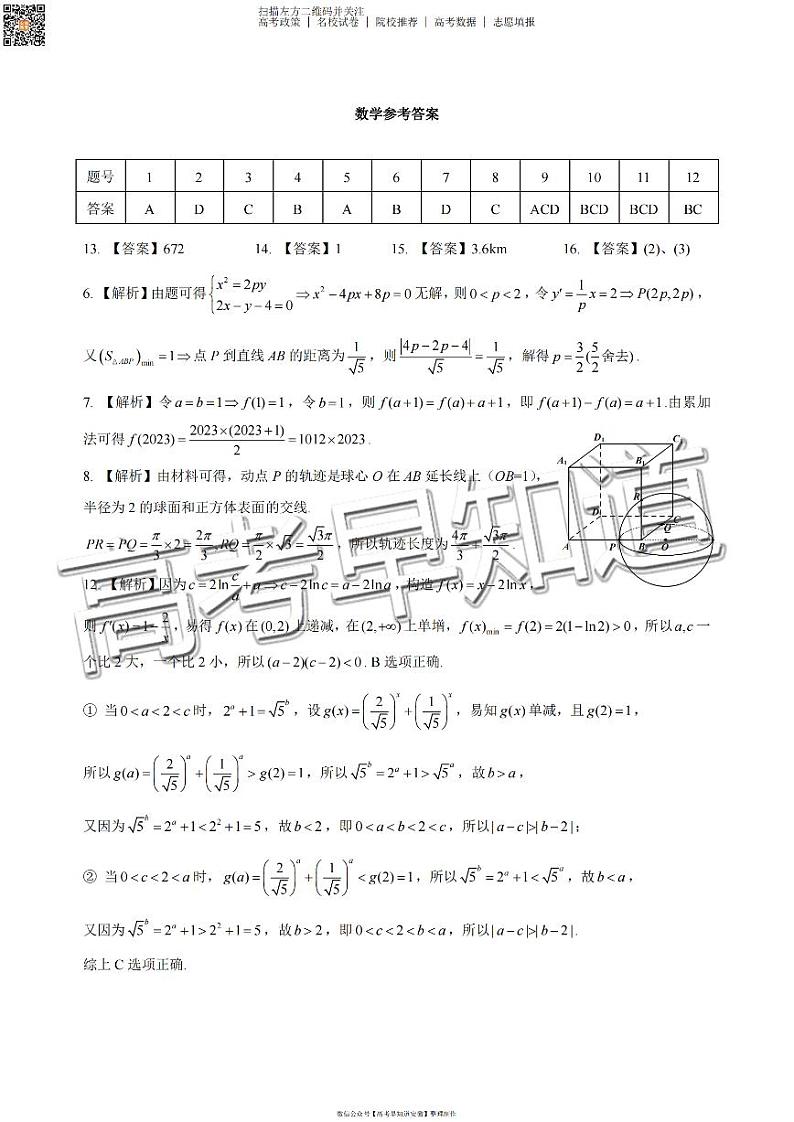 扫描左方二维码并关注
高考政策 | 名校试卷 | 院校推荐 | 高考数据 | 志愿填报
数学参考答案
题号 1 2 3 4 5 6 7 8 9 10 11 12
答案 A D C B A B D C ACD BCD BCD BC
13. 【答案】672 14. 【答案】1 15. 【答案】3.6km 16. 【答案】(2)、(3)
6. 【解析】由题可得{x²=2py, 2x−y−4=0 ⇒x²−4px+8p=0无解，则0<p<2，令y′=1/p x=2⇒P(2p,2p)，
又(S△ABP)min=1⇒点P到直线AB的距离为1/√5，则|4p−2p−4|/√5=1/√5，解得p=3/2(5/2舍去).
7. 【解析】令a=b=1⇒f(1)=1，令b=1，则f(a+1)=f(a)+a+1，即f(a+1)−f(a)=a+1.由累加
法可得f(2023)=2023×(2023+1)/2=1012×2023.
8. 【解析】由材料可得，动点P的轨迹是球心O在AB延长线上（OB=1），
半径为2的球面和正方体表面的交线.
PR=PQ=π/3×2=2π/3,RQ=π/2×√3=√3π/2，所以轨迹长度为4π/3+√3π/2.
D₁ C₁ A₁ B₁ R D C Q A P B O
12. 【解析】因为c=2ln c/a+a⇒c−2lnc=a−2lna，构造f(x)=x−2lnx，
则f′(x)=1−2/x，易得f(x)在(0,2)上递减，在(2,+∞)上单增，f(x)min=f(2)=2(1−ln2)>0，所以a,c一
个比2大，一个比2小，所以(a−2)(c−2)<0. B选项正确.
① 当0<a<2<c时，2ᵃ+1=√5ᵇ，设g(x)=(2/√5)ˣ+(1/√5)ˣ，易知g(x)单减，且g(2)=1，
所以g(a)=(2/√5)ᵃ+(1/√5)ᵃ>g(2)=1，所以√5ᵇ=2ᵃ+1>√5ᵃ，故b>a，
又因为√5ᵇ=2ᵃ+1<2²+1=5，故b<2，即0<a<b<2<c，所以|a−c|>|b−2|；
② 当0<c<2<a时，g(a)=(2/√5)ᵃ+(1/√5)ᵃ<g(2)=1，所以√5ᵇ=2ᵃ+1<√5ᵃ，故b<a，
又因为√5ᵇ=2ᵃ+1>2²+1=5，故b>2，即0<c<2<b<a，所以|a−c|>|b−2|.
综上C选项正确.
高考早知道
微信公众号【高考早知道安徽】整理制作